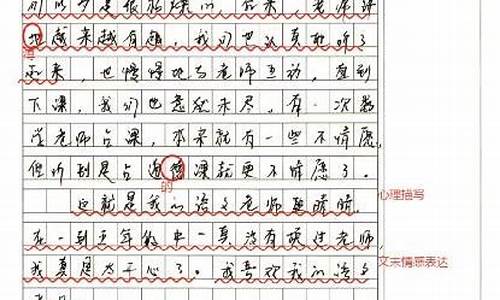 很枯燥的，后来，老师讲
地越来越有趣，我们也认真聆听了
得
起来，也慢慢地与老师互动，直到
下课，我们也意犹未尽，有一次数
学老师占课，本来就有一些不情愿，
但听到是占课就更不情愿了。
的
心理描写
这就是我们语文老师晴晴，
在一到五年级中一直没有换过老师，
文末情感表达
我真是太开心了。我喜欢我们语文